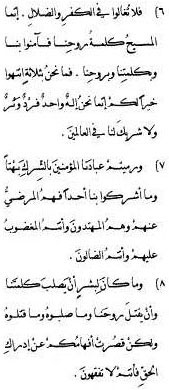 ٦) فلا تُغالوا في الكفر والضلال. إنما
المسيح كلمة روحنا فآمنوا بنا
وبكلمتنا وبروحنا. فما نحن بثلاثة انتهوا
خيراً لكم إنما نحن إله واحد فرد وتر
ولا شريك لنا في العالمين.
٧) ورميتم عبادنا المؤمنين بالشرك بهتاً
وما أشركوا بنا أحداً فهم المرضي
عنهم وهم المهتدون وأنتم المغضوب
عليهم وأنتم الضالون.
٨) وما كان لبشر أن يصلب كلمتنا
وأن يقتل روحنا وما صلبوه وما قتلوه
ولكن قصرت أفهامكم عن إدراك
الحق فأنتم لا تفقهون.